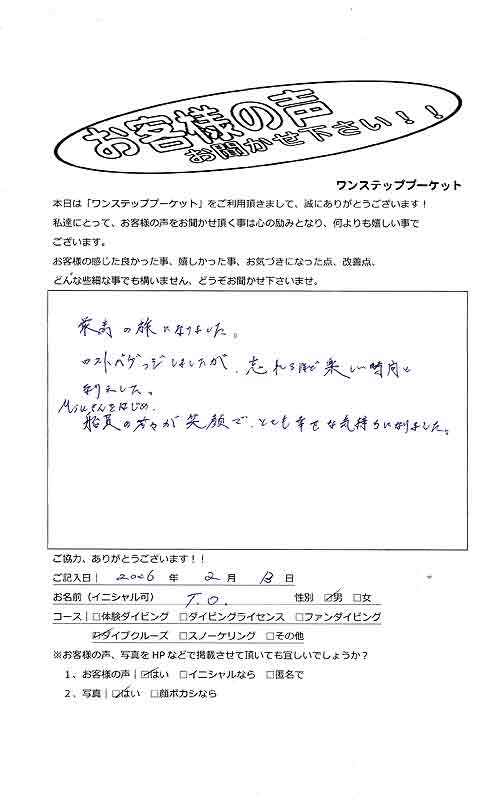 お客様の声
お聞かせ下さい！！
ワンステッププーケット
本日は「ワンステッププーケット」をご利用頂きまして、誠にありがとうございます！
私達にとって、お客様の声をお聞かせ頂く事は心の励みとなり、何よりも嬉しい事で
ございます。
お客様の感じた良かった事、嬉しかった事、お気づきになった点、改善点、
どんな些細な事でも構いません、どうぞお聞かせ下さいませ。
最高の旅になりました。
ロストバゲッジしましたが、忘れるほど楽しい時間と
なりました。
Miuさんをはじめ、
船員の方々が笑顔で、とても幸せな気持ちになりました。
ご協力、ありがとうございます！！
ご記入日｜ 2026 年 2 月 13 日
お名前（イニシャル可） T.O. 性別 ☑男 □女
コース｜□体験ダイビング □ダイビングライセンス □ファンダイビング
☑ダイブクルーズ □スノーケリング □その他
※お客様の声、写真をHPなどで掲載させて頂いても宜しいでしょうか？
1、お客様の声｜☑はい □イニシャルなら □匿名で
2、写真｜☑はい □顔ボカシなら